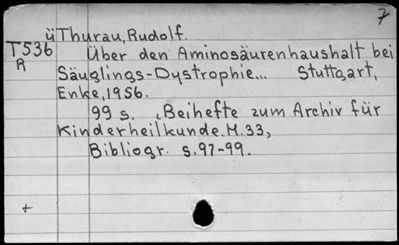 7
üThurau, Rudolf.
T536 Über den Aminosäurenhaushalt bei
R Säuglings-Dystrophie... Stuttgart,
Enke, 1956.
99 s. (Beihefte zum Archiv für
Kinderheilkunde. H.33,
Bibliogr. s.97-99.
+